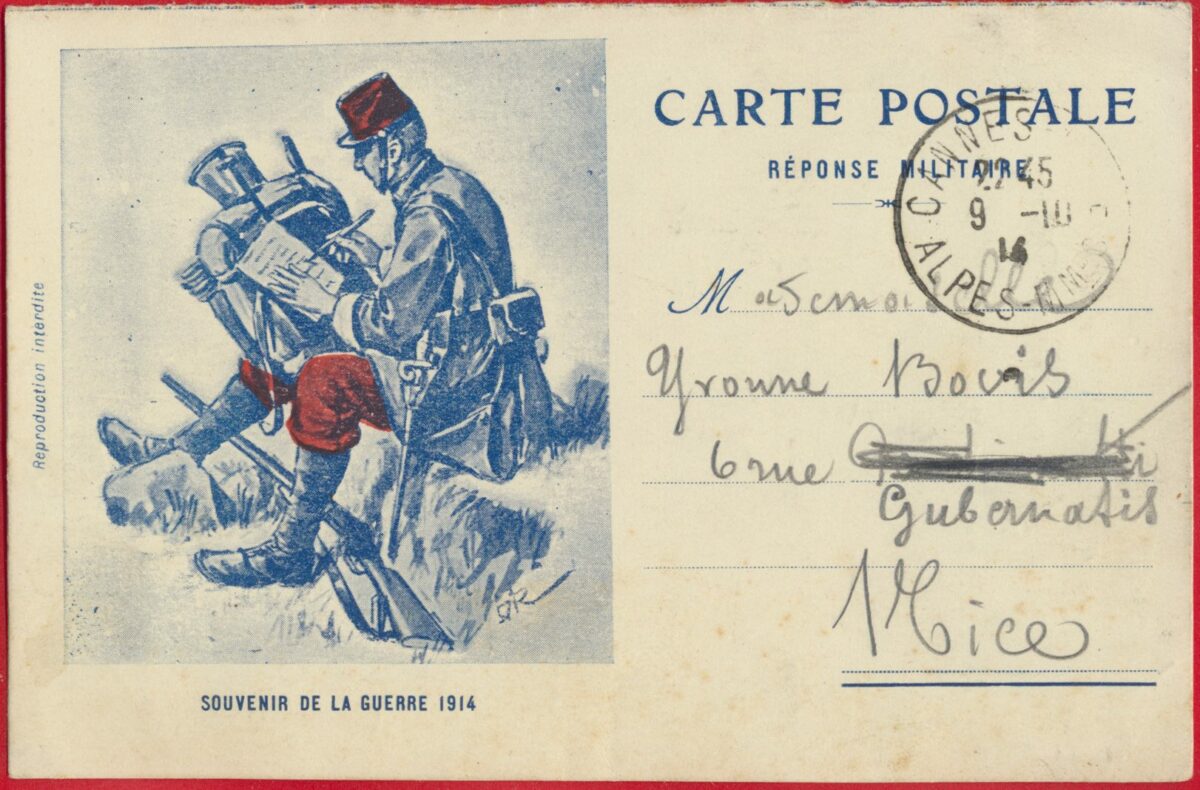 Reproduction interdite
SOUVENIR DE LA GUERRE 1914
CARTE POSTALE
RÉPONSE MILITAIRE
CANNES
22 45
9 -10
14
ALPES-MMES
Mademoiselle
Yvonne Bovis
6 rue
Gubernatis
Nice